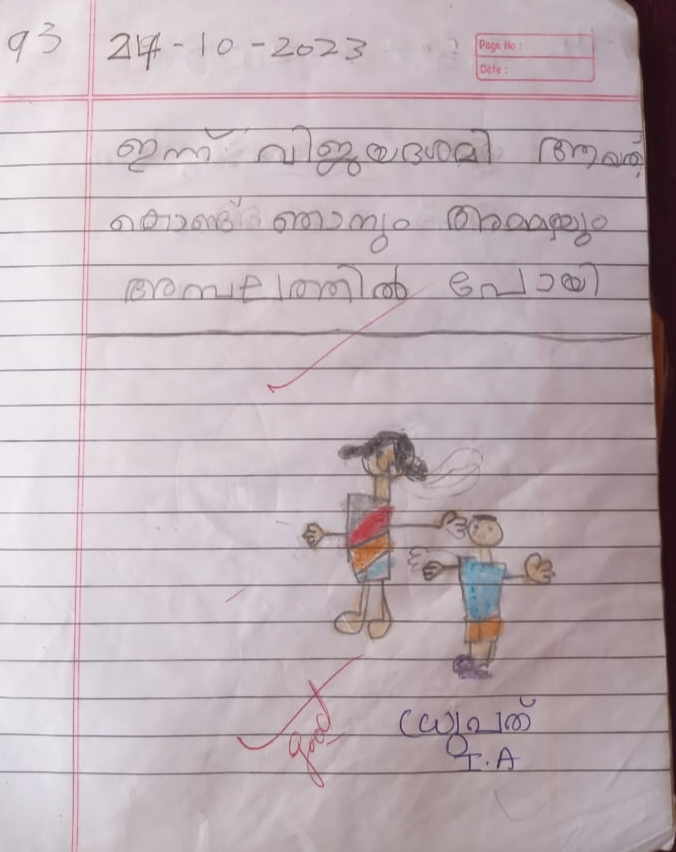 93 24-10-2023
Page No :
Date :
ഇന്ന് വിജയദശമി ആയത്
കൊണ്ട് ഞാനും അമ്മയും
അമ്പലത്തിൽ പോയി
good
I.A